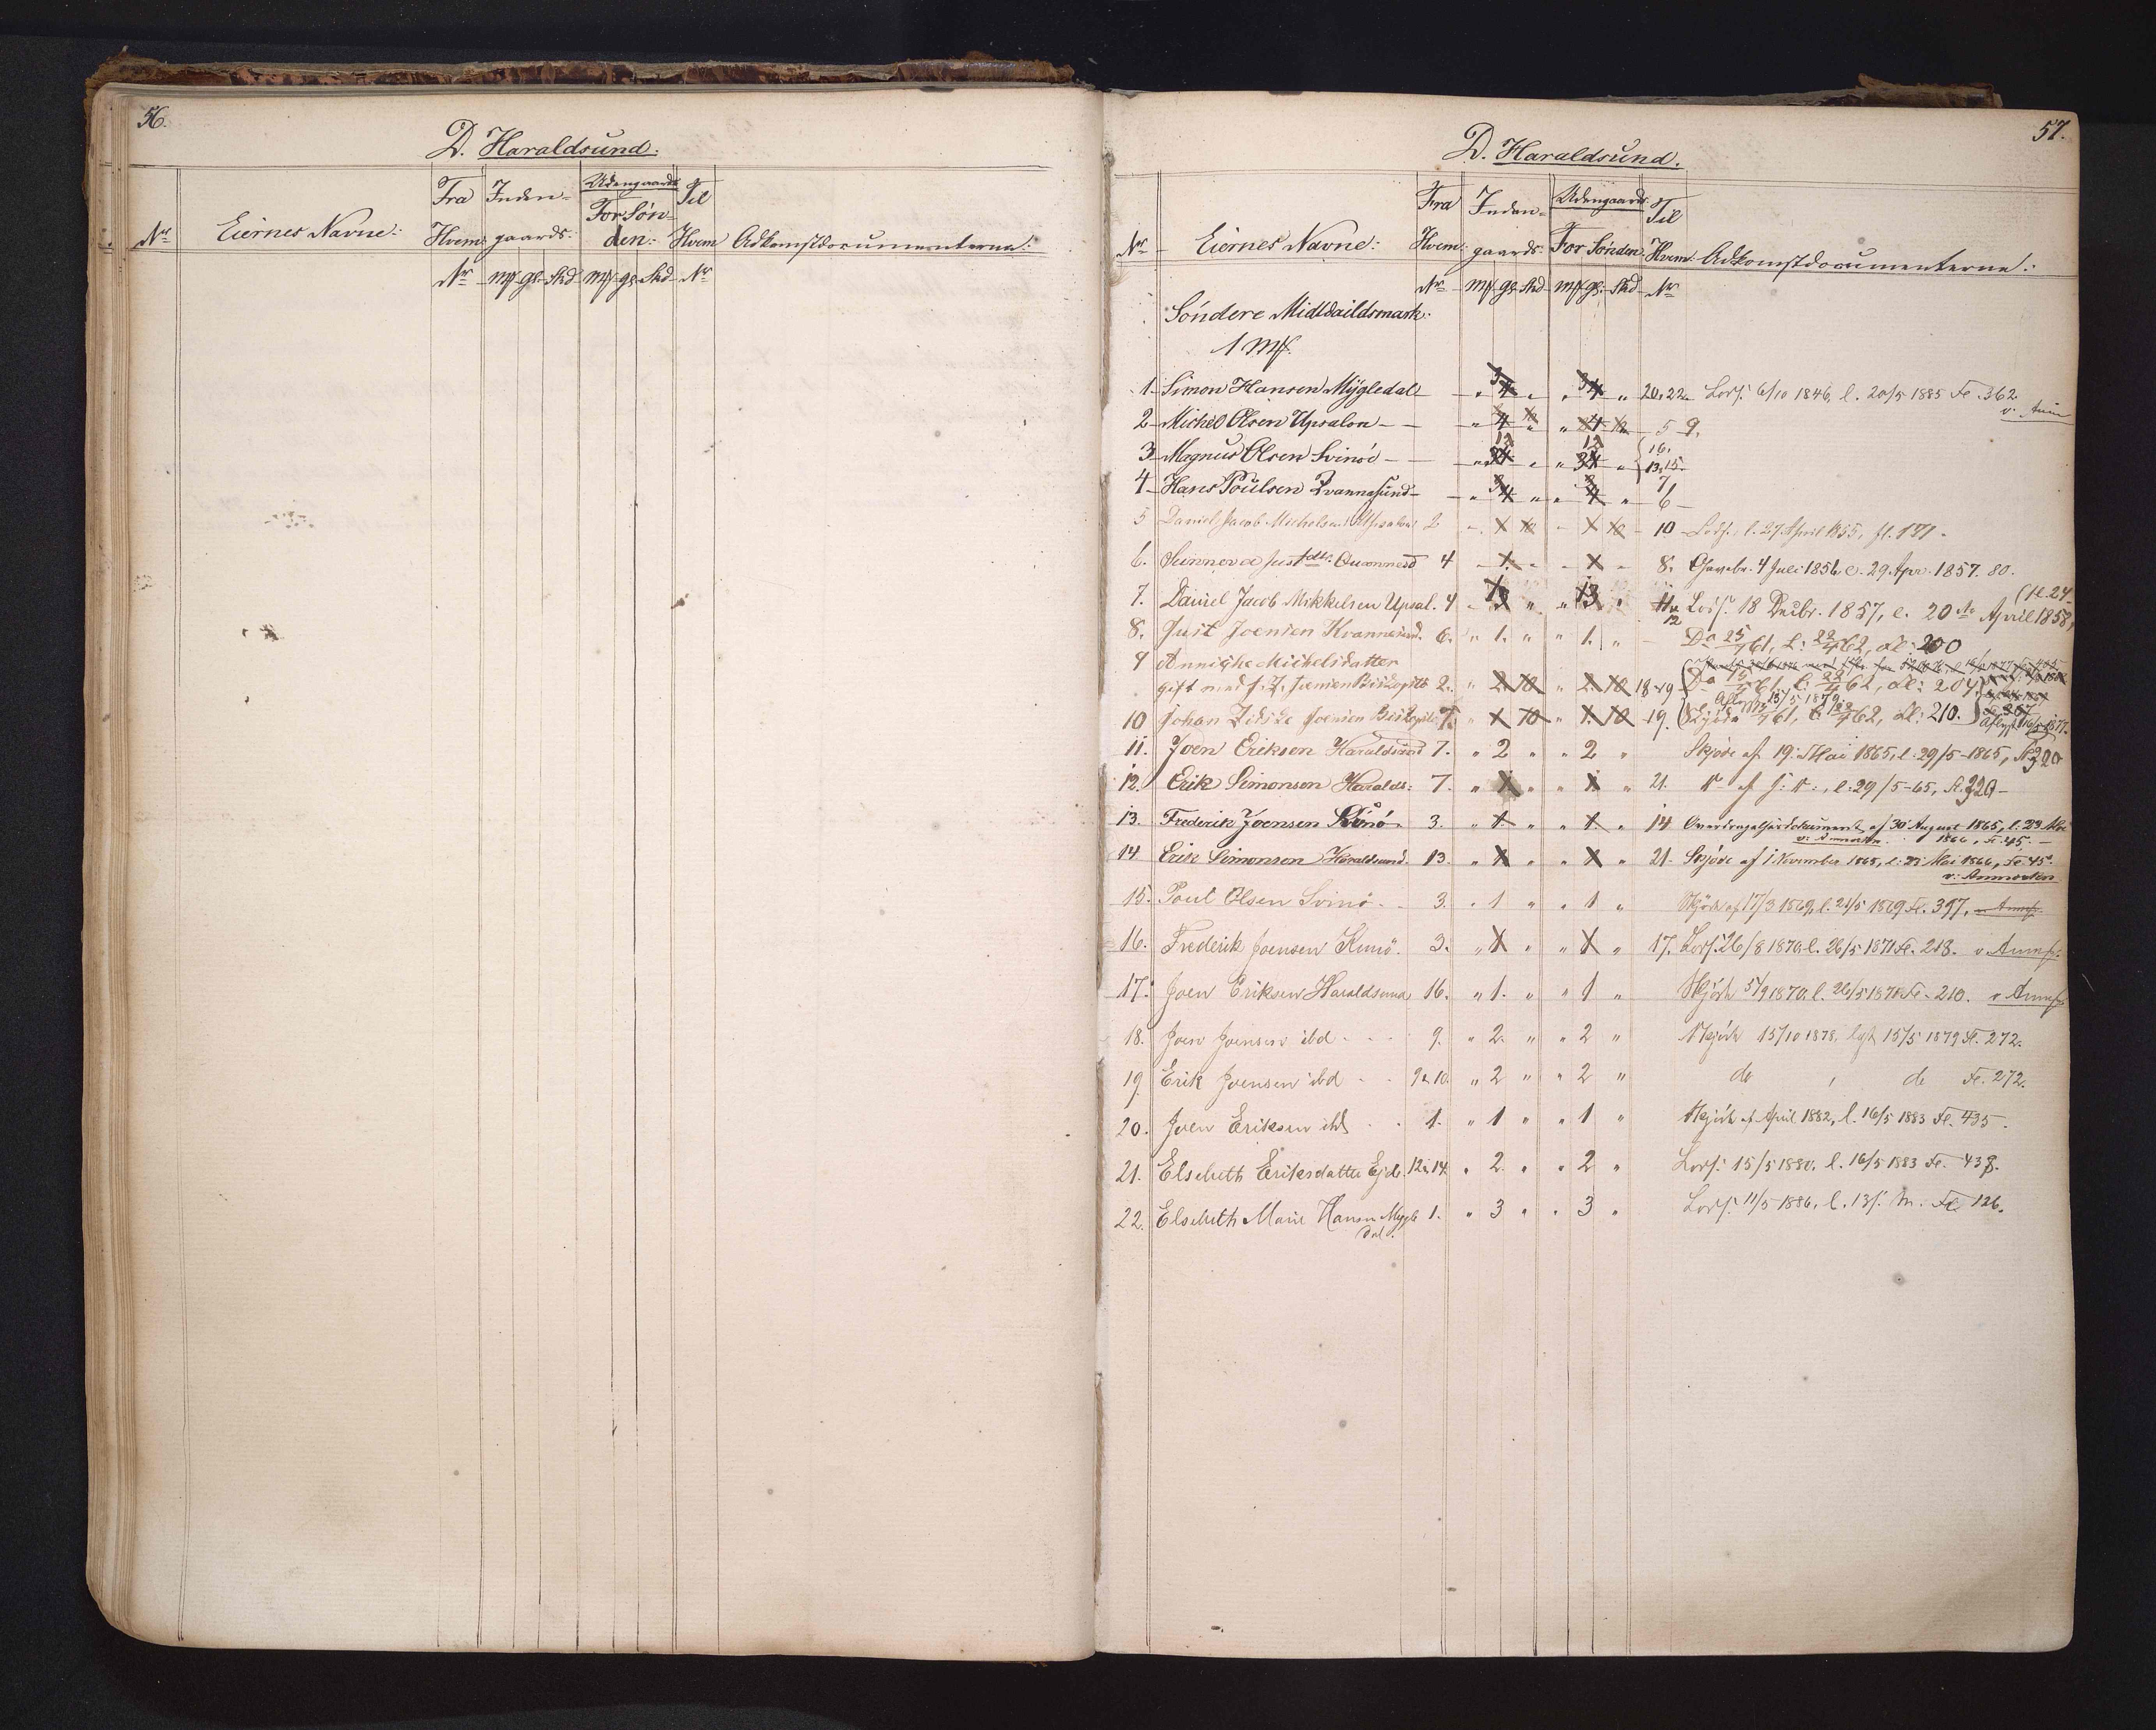 56.
D. Haraldsund.
Nr Eiernes Navne: Fra Hvem: Inden- gaards: Udengaards For Sønden: Til Hvem Adkomstdocumenterne:
Nr mk gl. Skd mk gl. Skd Nr
57.
D. Haraldsund.
Nr Eiernes Navne: Fra Hvem: Inden- gaards: Udengaards For Sønden: Til Hvem: Adkomstdocumenterne:
Nr mk gl. Skd mk gl. Skd Nr
Söndere Midtdaildsmark:
1 mk.
1. Simon Hansen Mÿgledal " 4 " " 4 " 20, 22. Lovf. 6/10 1846, l. 20/5 1885 Fo. 362.
2 Michel Olsen Upsalon " 4 " " 4 5 9.
3 Magnus Olsen Svinö " " " " 16. 13, 15.
4 Hans Poulsen Qvannasund " 4 " " 4 " 7 6
5 Daniel Jacob Michelsen Upsalon 2 10 Lovf. l. 27 April 1855, fl. 171.
6. Sunneva Just dtr Quannesd 4 8. Gavebr. 4 Juli 1856 l. 29. Apr. 1857. 80.
7. Daniel Jacob Mikkelsen Upsal. 4 " " 11 12 Lovf. 18 Decbr. 1857, l. 20de April 1858, (fl. 24
8. Just Joensen Kvannesund. 6. " 1. " " 1. " Do 25/ 61, l: 22/4 62, fl: 200
9 Annighe Michelsdatter
gift med J. Z. Joensen Biskopstö 2. " 2. 10 " 2. 10 18-19 Do 15/ 61, l: 22/4 62, fl: 204
10 Johan Zidske Joensen Biskopstö 7. " 1 10 " 1. 10 19. Skjøde 61, l 22/4 62, fl: 210.
11. Joen Eriksen Haraldsund 7. " 2 " " 2 " Skjöde af 19. Mai 1865, l: 29/5-1865, Fo 320
12. Erik Simonsen Haralds: 7. " 1 " " 1 " 21. l: 29/5-65, fl. 320-
13. Frederik Joensen Kunö 3. " 1. " " 1 " 14 af 30 August 1865, l: 23 Mai
1866, Fo 45.
14. Erik Simonsen Haraldsund. 13. " 1 " " 1 " 21. Skjöde af 1 November 1865, l: 23 Mai 1866, Fo. 45.
15. Poul Olsen Svinö 3. " 1 " " 1 " Skjöde af 17/3 1869, l. 21/5 1869 Fo. 397.
16. Frederik Joensen Kunö. 3. " 1 " " 1 " 17. Lovf. 26/8 1870, l. 26/5 1871 Fo. 218. v. Anmk.
17. Joen Eriksen Haraldsund 16. " 1. " " 1 " Skjöde 5/9 1870, l. 26/5 1871 Fo. 210. v. Anmk
18. Joen Joensen ibd 9. " 2. " " 2 " Skjöde 15/10 1878, lgt 15/5 1879 Fl. 272.
19. Erik Joensen ibd 9 & 10. " 2 " " 2 " do , do Fo. 272.
20. Joen Eriksen ibd 1. " 1 " " 1 " Skjöde af April 1882, l. 16/5 1883 Fo. 435.
21. Elsebeth Eriksdatter Ejde. 12 & 14. " 2. " " 2 " Lovf. 15/5 1880, l. 16/5 1883 Fo. 438.
22. Elsebeth Marie Hansen Mygle 1. " 3 " " 3 " Lovf. 11/5 1886, l. 13/. M. Fo 126.
dal.